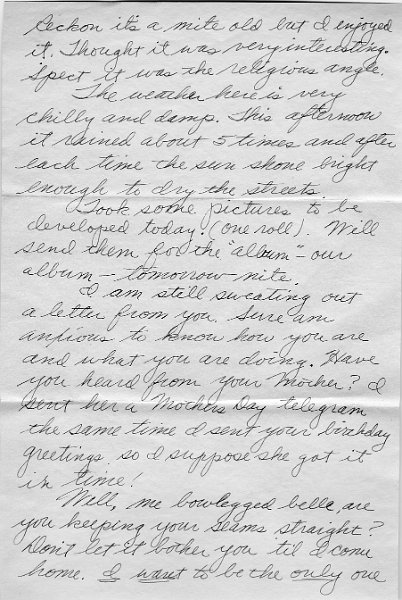 Reckon it's a mite old but I enjoyed
it. Thought it was very interesting.
'Spect it was the religious angle.
The weather here is very
chilly and damp. This afternoon
it rained about 5 times and after
each time the sun shone bright
enough to dry the streets.
Took some pictures to be
developed today. (one roll). Will
send them for the "album" - our
album - tomorrow nite.
I am still sweating out
a letter from you. Sure am
anxious to know how you are
and what you are doing. Have
you heard from your Mother? I
sent her a Mothers Day telegram
the same time I sent your birthday
greetings so I suppose she got it
in time!
Well, me bowlegged belle, are
you keeping your seams straight?
Don't let it bother you 'til I come
home. I want to be the only one